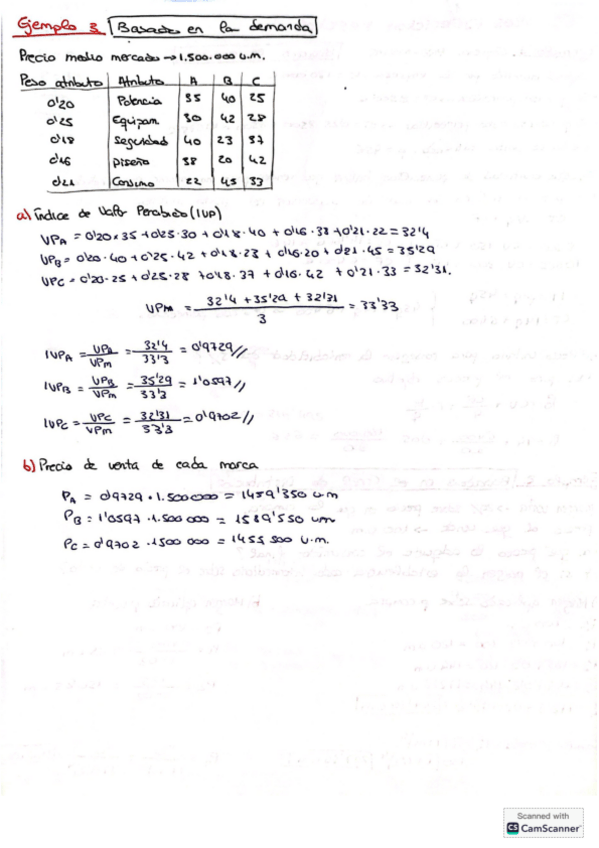 Ejemplo 3 Basados en la demanda
Precio medio mercado → 1.500.000 u.m.
Peso atributo Atributo A B C
0'20 Potencia 35 40 25
0'25 Equipam 30 42 28
0'18 Seguridad 40 23 37
0'16 Diseño 38 20 42
0'21 Consumo 22 45 33
a) Índice de Valor Percibido (IVP)
VPA = 0'20 x 35 + 0'25 · 30 + 0'18 · 40 + 0'16 · 38 + 0'21 · 22 = 32'4
VPB = 0'20 · 40 + 0'25 · 42 + 0'18 · 23 + 0'16 · 20 + 0'21 · 45 = 35'29
VPC = 0'20 · 25 + 0'25 · 28 + 0'18 · 37 + 0'16 · 42 + 0'21 · 33 = 32'31.
VPM = 32'4 + 35'29 + 32'31 / 3 = 33'33
IVPA = VPA / VPm = 32'4 / 33'3 = 0'9729//
IVPB = VPB / VPm = 35'29 / 33'3 = 1'0597//
IVPC = VPC / VPm = 32'31 / 33'3 = 0'9702//
b) Precio de venta de cada marca
PA = 0'9729 · 1.500000 = 1459'350 u.m
PB = 1'0597 · 1.500000 = 1589'550 um
PC = 0'9702 · 1500 000 = 1455 300 u.m.
Scanned with
CS CamScanner